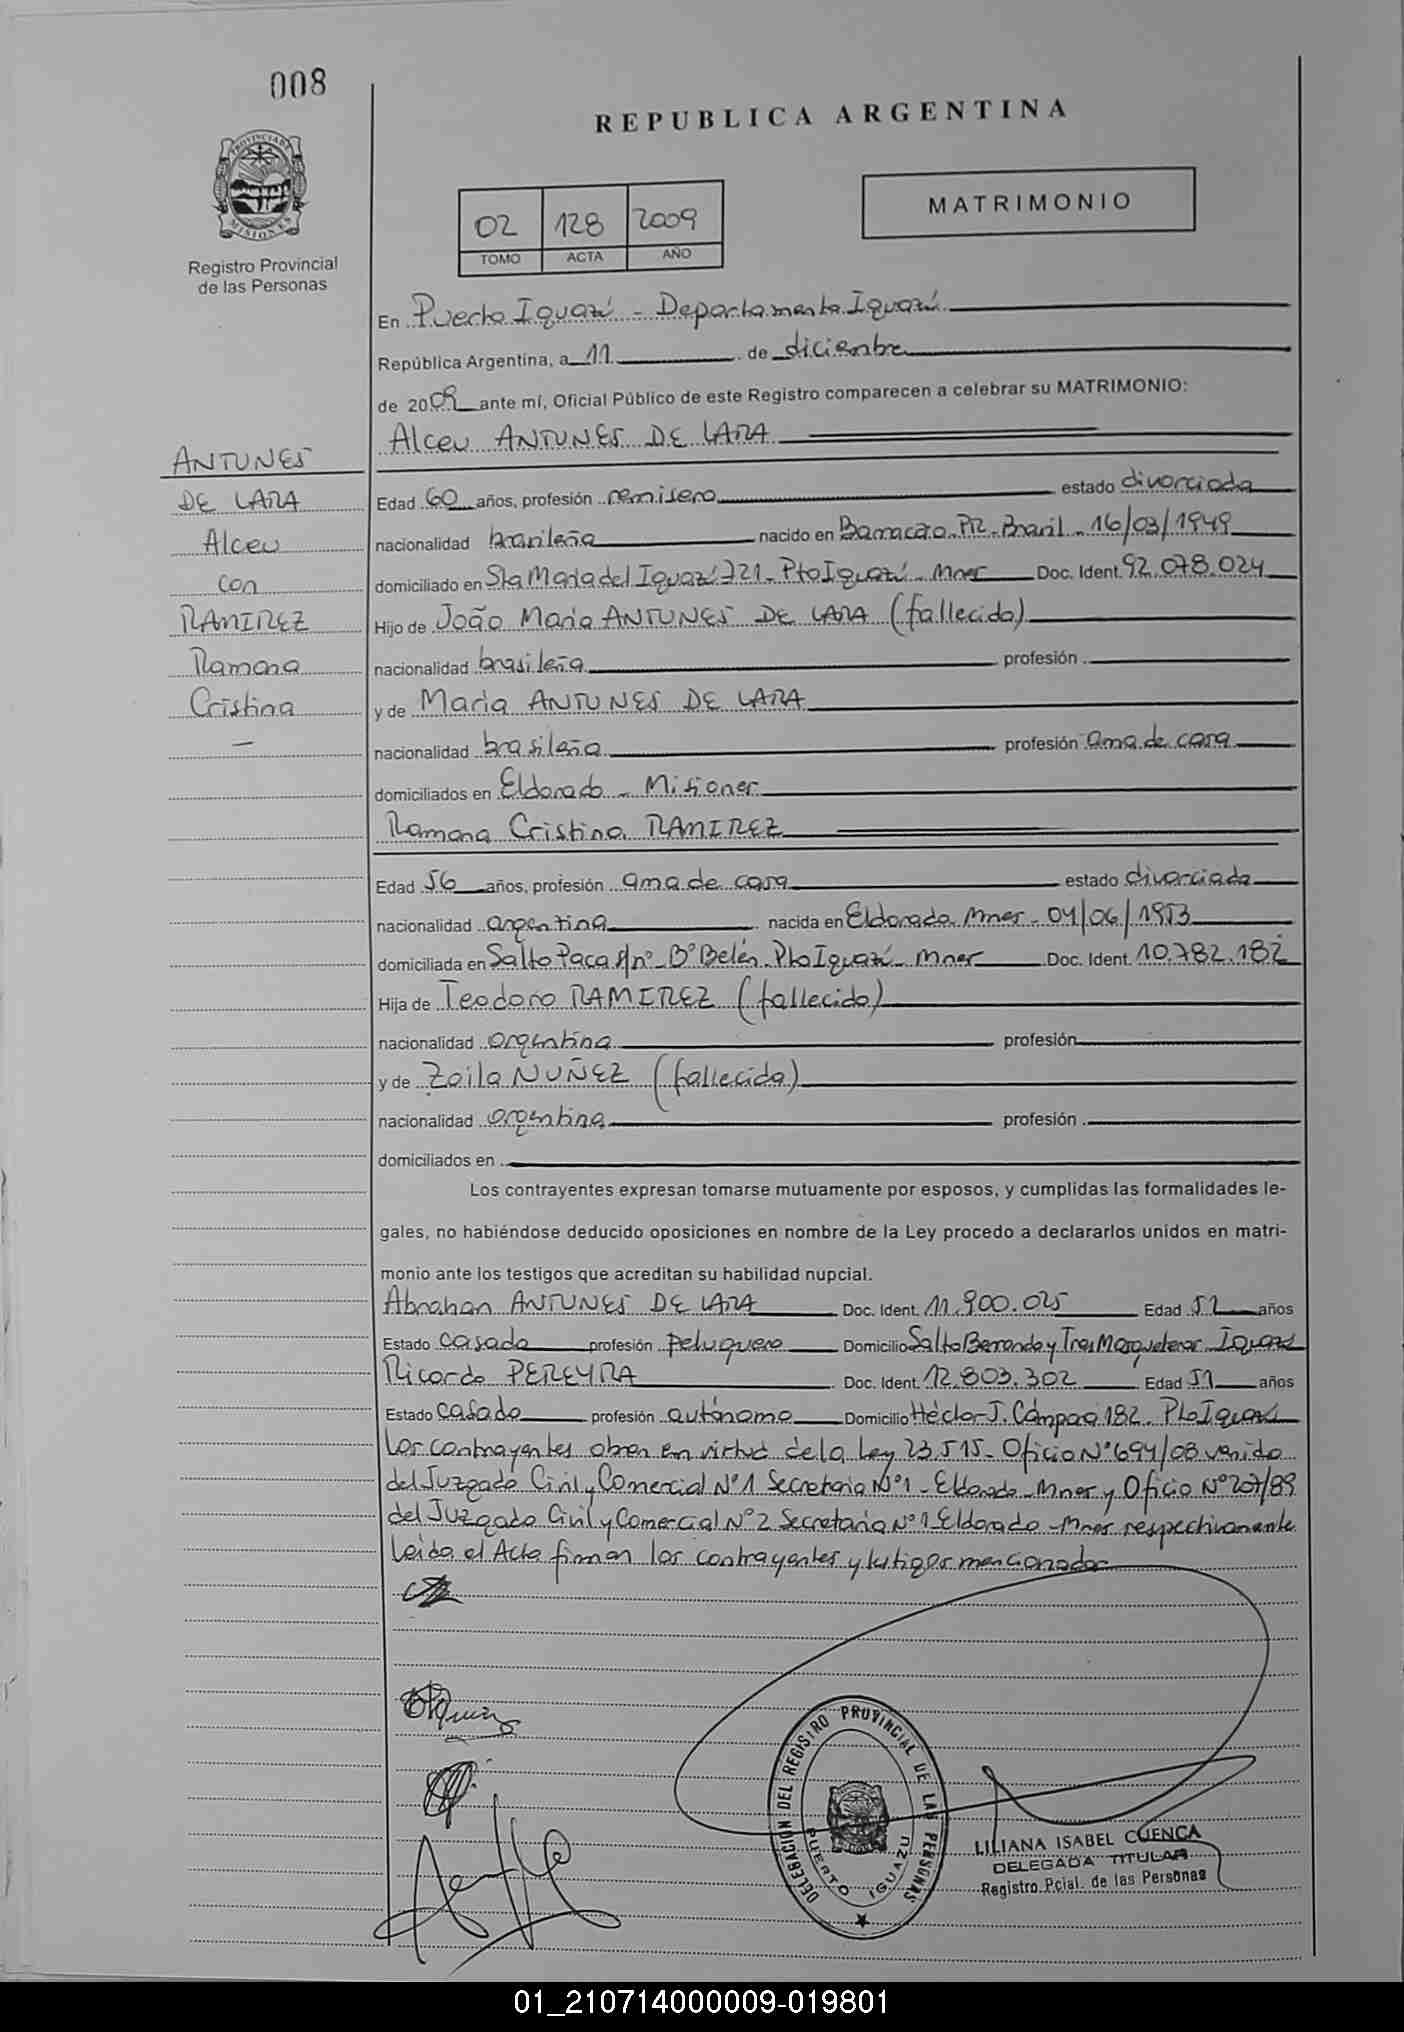 008
REPUBLICA ARGENTINA
PROVINCIA DE MISIONES
Registro Provincial
de las Personas
02 128 2009
TOMO ACTA AÑO
MATRIMONIO
En Puerto Iguazú - Departamento Iguazú
República Argentina, a 11 de diciembre
de 2009 ante mí, Oficial Público de este Registro comparecen a celebrar su MATRIMONIO:
Alceu ANTUNES DE LARA
ANTUNES
DE LARA
Alceu
con
RAMIREZ
Ramona
Cristina
Edad 60 años, profesión remisero estado divorciado
nacionalidad brasileña nacido en PR - Brasil - 16/03/1949
domiciliado en Sta María del Iguazú 721 - Pto Iguazú - Mnes Doc. Ident. 92.078.024
Hijo de João Maria ANTUNES DE LARA (fallecido)
nacionalidad brasileña profesión
y de Maria ANTUNES DE LARA
nacionalidad brasileña profesión ama de casa
domiciliados en Eldorado - Misiones
Ramona Cristina RAMIREZ
Edad 56 años, profesión ama de casa estado divorciada
nacionalidad argentina nacida en Eldorado Mnes - 04/06/1953
domiciliada en Salto Paca s/nº - Bº Belén - Pto Iguazú - Mnes Doc. Ident. 10.782.182
Hija de Teodoro RAMIREZ (fallecido)
nacionalidad argentina profesión
y de Zoila NUÑEZ (fallecida)
nacionalidad argentina profesión
domiciliados en
Los contrayentes expresan tomarse mutuamente por esposos, y cumplidas las formalidades le-
gales, no habiéndose deducido oposiciones en nombre de la Ley procedo a declararlos unidos en matri-
monio ante los testigos que acreditan su habilidad nupcial.
Abrahan ANTUNES DE LARA Doc. Ident. 11.900.025 Edad 52 años
Estado casado profesión peluquero Domicilio Salto y Tres Mosqueteros Iguazú
Ricardo PEREYRA Doc. Ident. 12.803.302 Edad 51 años
Estado casado profesión autónomo Domicilio Héctor J. Cámpora 182 - Pto Iguazú
Los contrayentes obran en virtud de la Ley 23.515 - Oficio Nº 694/08 venido
del Juzgado Civil y Comercial Nº 1 Secretaria Nº 1 - Eldorado - Mnes y Oficio Nº 207/89
del Juzgado Civil y Comercial Nº 2 Secretaria Nº 1 Eldorado - Mnes respectivamente
Leído el Acta firman los contrayentes y testigos mencionados
DELEGACION DEL REGISTRO PROVINCIAL DE LAS PERSONAS
PUERTO IGUAZU
LILIANA ISABEL CUENCA
DELEGADA TITULAR
Registro Pcial. de las Personas
01_210714000009-019801